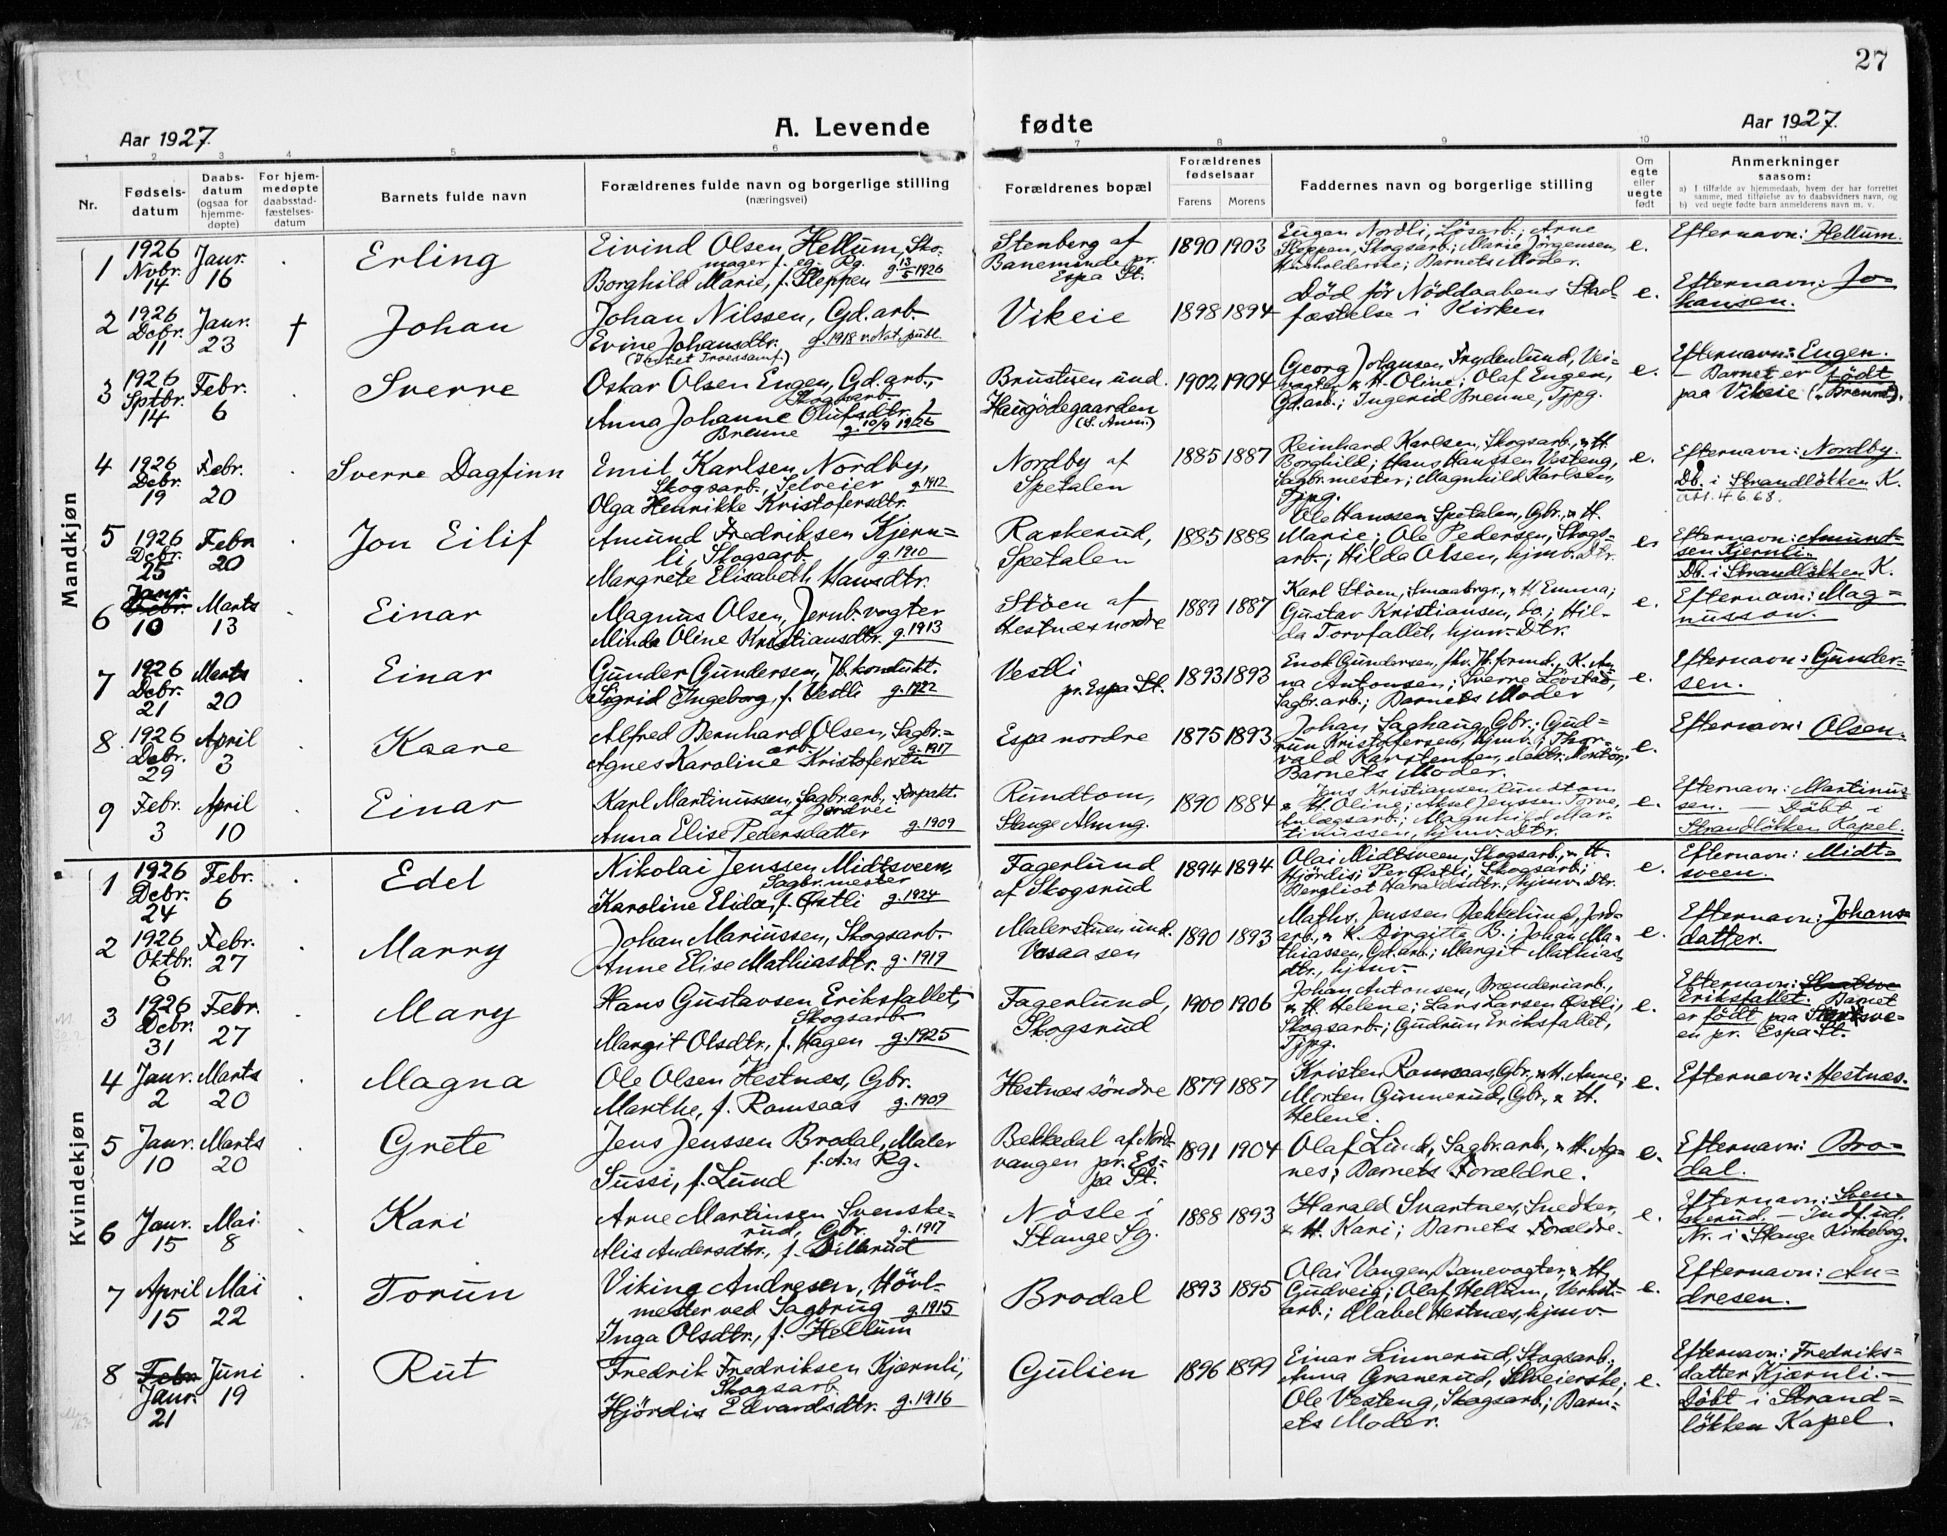 27
Aar 1927.
A. Levende
fødte
Aar 1927.
1 2 3 4 5 6 7 8 9 10 11
Nr.
Fødsels-
datum
Daabs-
datum
(ogsaa for
hjemme-
døpte)
For hjem-
medøpte
daabsstad-
fæstelses-
datum
Barnets fulde navn
Forældrenes fulde navn og borgerlige stilling
(næringsvei)
Forældrenes bopæl
Forældrenes
fødselsaar
Farens
Morens
Faddernes navn og borgerlige stilling
Om
egte
eller
uegte
født
Anmerkninger
saasom:
a) I tilfælde av hjemmedaab, hvem der har forrettet
samme, med tilføielse av to daabsvidners navn, og
b) ved uegte fødte barn anmelderens navn m. v.
Mandkjøn
1
1926
Novbr.
14
Janr.
16
Erling
Eivind Olsen Hellum, Sko-
mager f. eg. Rg.
Borghild Marie, f. Sleppen g. 13/5 1926
Stenberg af
Baneminde pr.
Espa St.
1890 1903
Eugen Nordli, Løsarb.; Arne
Sleppen, Skogsarb.; Marie Jørgensen,
Husholderske; Barnets Moder.
e.
Efternavn: Hellum.
2
1926
Debr.
11
Janr.
23
†
Johan
Johan Nilssen, Gd.arb.
Evine Johansdtr. g. 1918 v. Not. publ.
(Tvedtet Troessamf.)
Vikeie
1898 1894
Død før Nøddaabens Stad-
fæstelse i Kirken
e.
Efternavn: Jo-
hansen.
3
1926
Sptbr.
14
Febr.
6
Sverre
Oskar Olsen Engen, Gd.arb.,
Skogsarb.
Anna Johanne Olufsdtr. f.
Brenne g. 10/9 1926
Brustuen und.
Haugødegaarden
(S. Anm.)
1902 1904
Georg Johansen Frydenlund, Vei-
vogter & H. Oline; Olaf Engen,
Gd.arb.; Ingerid Brenne, Tjpg.
e.
Efternavn: Engen.
- Barnet er født
paa Vikeie (Brenne).
4
1926
Debr.
19
Febr.
20
Sverre Dagfinn
Emil Karlsen Nordby,
Skogsarb., Selveier g. 1912
Olga Henrikke Kristofersdtr.
Nordby af
Spetalen
1885 1887
Reinhard Karlsen, Skogsarb., & H.
Borghild; Hans Hanssen Vesteng,
Sagbr.mester; Magnhild Karlsen,
Tjpg.
e.
Efternavn: Nordby.
Db. i Strandløkken K.
att. 4.6.68.
5
1926
Debr.
25
Febr.
20
Jon Eilif
Amund Fredriksen Kjern-
li, Skogsarb. g. 1910
Margrete Elisabeth Hansdtr.
Raskerud,
Spetalen
1885 1888
Ole Hanssen Spetalen, Gbr., & H.
Marie; Ole Pedersen, Skogs-
arb.; Hilda Olsen, hjmv. Dtr.
e.
Efternavn: Amund-
sen Kjernli.
Db. i Strandløkken K.
6
Janr.
10
Marts
13
Einar
Magnus Olsen, Jernb.vogter
Minda Oline Kristiansdtr. g. 1913
Støen af
Hestnæs nordre
1889 1887
Karl Støen, Smaabrgr., & H. Emma;
Gustav Kristiansen, do.; Hil-
da Torvfallet, hjmv. Dtr.
e.
Efternavn: Mag-
nusson.
7
1926
Debr.
21
Marts
20
Einar
Gunder Gundersen, Jb. kondukt.
Sigrid Ingeborg, f. Vestli g. 1922
Vestli
pr. Espa St.
1893 1893
Enok Gundersen, fhv. Jb.formd., K. An-
na Antonsen; Sverre Løvstad,
Sagbr.arb.; Barnets Moder
e.
Efternavn: Gunder-
sen.
8
1926
Debr.
29
April
3
Kaare
Alfred Bernhard Olsen, Sagbr.=
arb. g. 1917
Agnes Karoline Kristofersen
Espa nordre
1875 1893
Johan Saghaug, Gbr.; Gud-
run Kristofersen, hjmv.; Thor-
vald Karstensen, elektr. Montør;
Barnets Moder.
e.
Efternavn: Olsen.
9
Febr.
3
April
10
Einar
Karl Martinussen, Sagbr.arb., Forpakt.
af Jordvei
Anna Elise Pedersdatter g. 1909
Rundtom,
Stange Almng.
1890 1884
Jens Kristiansen Rundtom
& H. Oline; Aksel Jenssen Torve,
Anlægsarb.; Magnhild Mar-
tinussen, hjmv. Dtr.
e.
Efternavn: Martinus-
sen. - Døbt i
Strandløkken Kapel.
Kvindekjøn
1
1926
Debr.
24
Febr.
6
Edel
Nikolai Jenssen Midtsveen,
Sagbr.mester
Karoline Elida, f. Østli g. 1924
Fagerlund
af Skogsrud
1894 1894
Olai Midtsveen, Skogsarb., & H.
Hjørdis; Per Østli, Skogsarb.;
Bergliot Haraldsdtr., hjmv. Dtr.
e.
Efternavn: Midt-
sveen.
2
1926
Oktbr.
6
Febr.
27
Marry
Johan Mariussen, Skogsarb.
Anne Elise Mathiasdtr. g. 1919
Malerstuen und.
Vesaasen
1890 1893
Maths. Jenssen Bækkelund, Jord-
arb., & K. Birgitta B.; Johan Ma-
thiassen, Gd.arb.; Margit Mathias-
dtr., hjmv.
e.
Efternavn: Johans-
datter.
3
1926
Debr.
31
Febr.
27
Mary
Hans Gustavsen Eriksfallet,
Skogsarb.
Margit Olsdtr., f. Hagen g. 1925
Fagerlund,
Skogsrud
1900 1906
Johan Antonsen, Brænderiarb.,
& H. Helene; Lars Larsen Østli,
Skogsarb.; Gudrun Eriksfallet,
Tjpg.
e.
Efternavn:
Eriksfallet. Barnet
er født paa Slaatsve-
en pr. Espa St.
4
Janr.
2
Marts
20
Magna
Ole Olsen Hestnæs, Gbr.
Marthe, f. Ramsaas g. 1909
Hestnæs søndre
1879 1887
Kristen Ramsaas, Gbr., & H. Anne;
Morten Gunnerud, Gbr., & H.
Helene.
e.
Efternavn: Hestnæs.
5
Janr.
10
Marts
20
Grete
Jens Jenssen Brodal, Maler
f. A.s Rg.
Sussi, f. Lund
Bækkedal af Nord-
vangen pr. Es-
pa St.
1891 1904
Olaf Lund, Sagbr.arb., & H. Ag-
nes; Barnets Forældre.
e.
Efternavn: Bro-
dal.
6
Janr.
15
Mai
8
Kari
Arne Martinsen Svenske-
rud, Gbr. g. 1917
Alis Andersdtr., f. Dillerud
Nøsle i
Stange Sg.
1888 1893
Harald Svartnes, Snedker,
& H. Kari; Barnets Forældre.
e.
Efternavn: Sven-
skerud. - Indf. ul.
Nr. i Stange Kirkebog.
7
April
15
Mai
22
Torun
Viking Andresen, Høvl-
mester ved Sagbrug g. 1915
Inga Olsdtr., f. Hellum
Brodal
1893 1895
Olai Vangen, Banevogter, & H.
Gudveig; Olaf Hellum, Verkst.-
arb.; Olabel Hestnæs, hjmv.
e.
Efternavn: An-
dresen.
8
Febr.
Janr.
21
Juni
19
Rut
Fredrik Fredriksen Kjærnli,
Skogsarb.
Hjørdis Edvardsdtr. g. 1916
Gulien
1896 1899
Einar Linnerud, Skogsarb.;
Anna Granerud, Selveierske;
Ole Vesteng, Skogsarb.; Barn-
ets Moder.
e.
Efternavn: Fredriks-
datter Kjærnli. -
Døbt i Strand-
løkken Kapel.